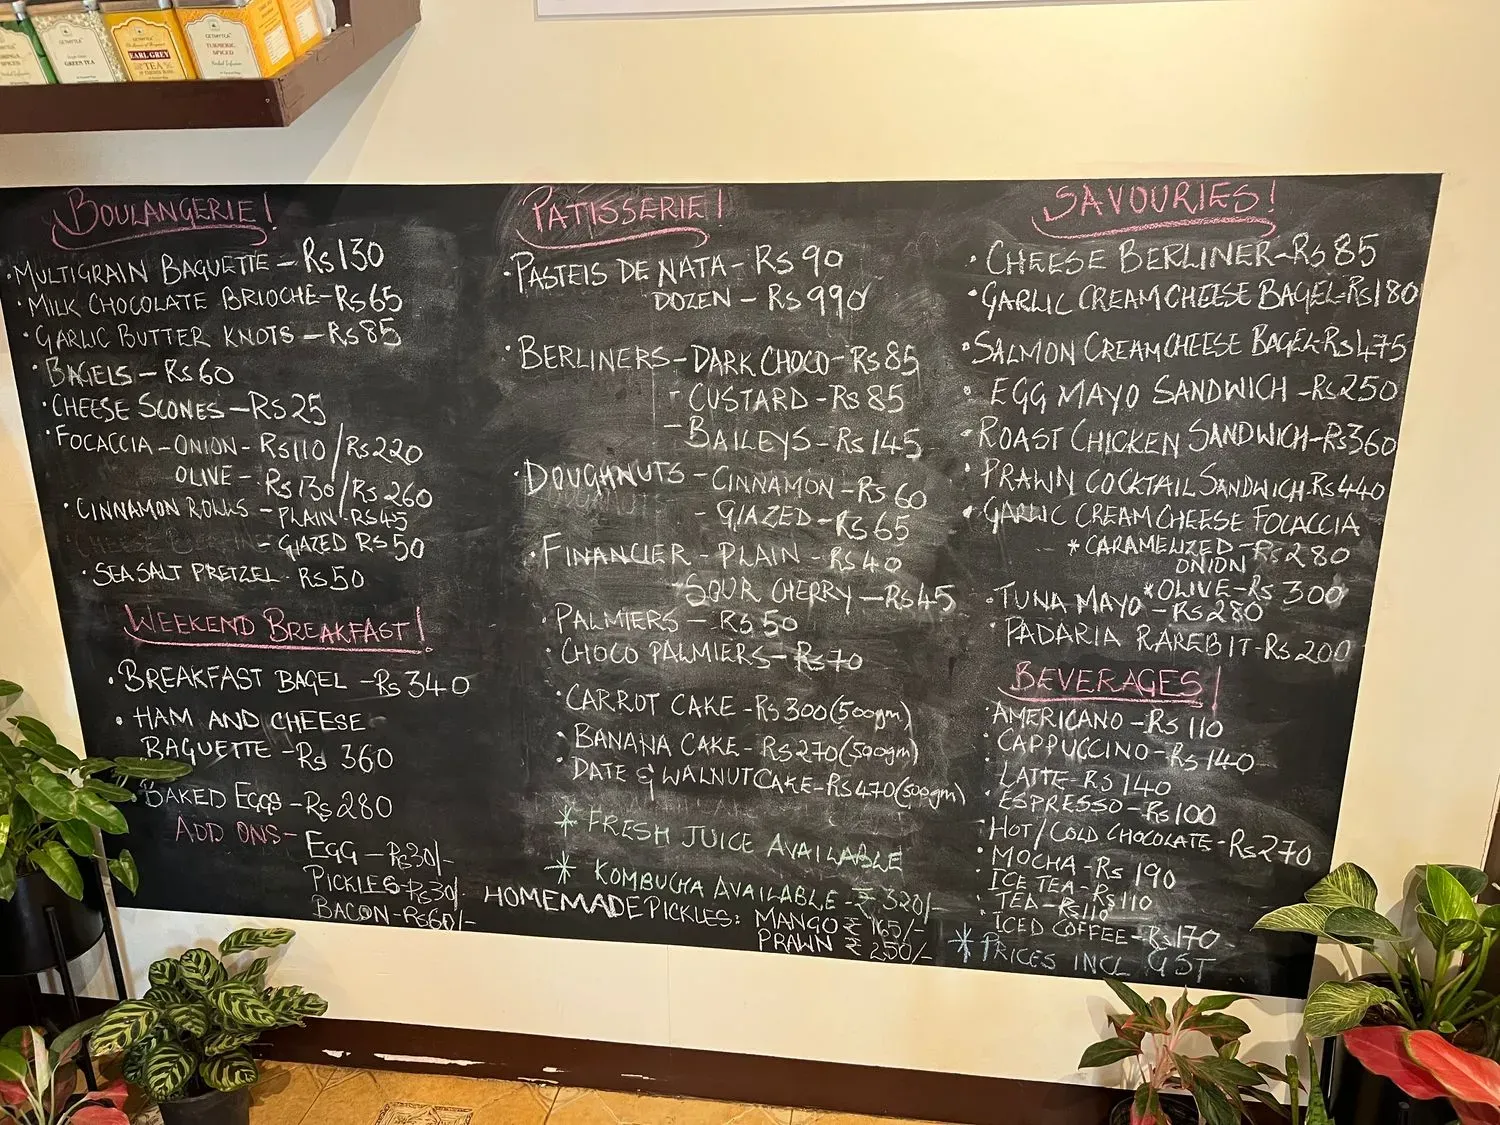 GREEN TEA
EARL GREY
TEA
TURMERIC
SPICED
BOULANGERIE!
· MULTIGRAIN BAGUETTE – Rs 130
· MILK CHOCOLATE BRIOCHE – Rs 65
· GARLIC BUTTER KNOTS – Rs 85
· BAGELS – Rs 60
· CHEESE SCONES – Rs 25
· FOCACCIA – ONION – Rs 110 / Rs 220
OLIVE – Rs 130 / Rs 260
· CINNAMON ROLLS – PLAIN – Rs 45
– GLAZED Rs 50
· SEA SALT PRETZEL – Rs 50
WEEKEND BREAKFAST!
· BREAKFAST BAGEL – Rs 340
· HAM AND CHEESE
BAGUETTE – Rs 360
· BAKED EGGS – Rs 280
ADD ONS – EGG – Rs 30/-
PICKLES – Rs 30/-
BACON – Rs 60/-
PATISSERIE!
· PASTEIS DE NATA – Rs 90
DOZEN – Rs 990
· BERLINERS – DARK CHOCO – Rs 85
– CUSTARD – Rs 85
– BAILEYS – Rs 145
· DOUGHNUTS – CINNAMON – Rs 60
– GLAZED – Rs 65
· FINANCIER – PLAIN – Rs 40
– SOUR CHERRY – Rs 45
· PALMIERS – Rs 50
· CHOCO PALMIERS – Rs 70
· CARROT CAKE – Rs 300 (500gm)
· BANANA CAKE – Rs 270 (500gm)
· DATE & WALNUT CAKE – Rs 470 (500gm)
* FRESH JUICE AVAILABLE
* KOMBUCHA AVAILABLE – ₹ 320/-
HOMEMADE PICKLES: MANGO ₹ 165/-
PRAWN ₹ 250/-
SAVOURIES!
· CHEESE BERLINER – Rs 85
· GARLIC CREAM CHEESE BAGEL – Rs 180
· SALMON CREAM CHEESE BAGEL – Rs 475
· EGG MAYO SANDWICH – Rs 250
· ROAST CHICKEN SANDWICH – Rs 360
· PRAWN COCKTAIL SANDWICH – Rs 440
· GARLIC CREAM CHEESE FOCACCIA
* CARAMELIZED ONION – Rs 280
* OLIVE – Rs 300
· TUNA MAYO – Rs 280
· PADARIA RAREBIT – Rs 200
BEVERAGES!
· AMERICANO – Rs 110
· CAPPUCCINO – Rs 140
· LATTE – Rs 140
· ESPRESSO – Rs 100
· HOT / COLD CHOCOLATE – Rs 270
· MOCHA – Rs 190
· ICE TEA – Rs 110
· TEA – Rs 110
· ICED COFFEE – Rs 170
* PRICES INCL GST